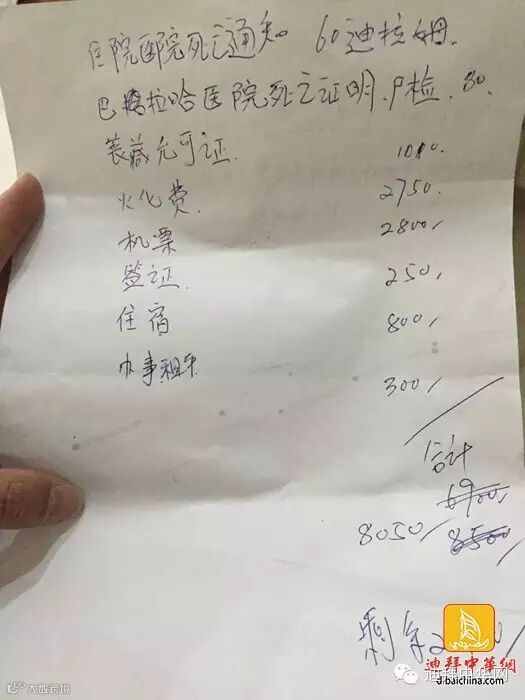 住院医院死亡通知 60迪拉姆.
巴拉哈医院死亡证明、尸检. 80.
装藏允可证. 1010
火化费. 2750.
机票 2800/
签证. 250/
住宿 800/
办事租车 300/
合计
6900
8050/ 8500
剩余
迪拜中华網
d.baichina.com
迪拜中华网
大皖跨境